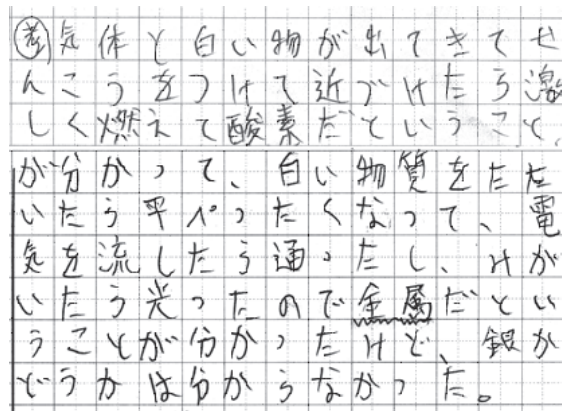 考気体と白い物が出てきてせ
んこうをつけて近づけたら激
しく燃えて酸素だということ、
が分かって、白い物質をたた
いたら平ぺったくなって、電
気を流したら通ったし、みが
いたら光ったので金属だとい
うことが分かったけど、銀か
どうかは分からなかった。